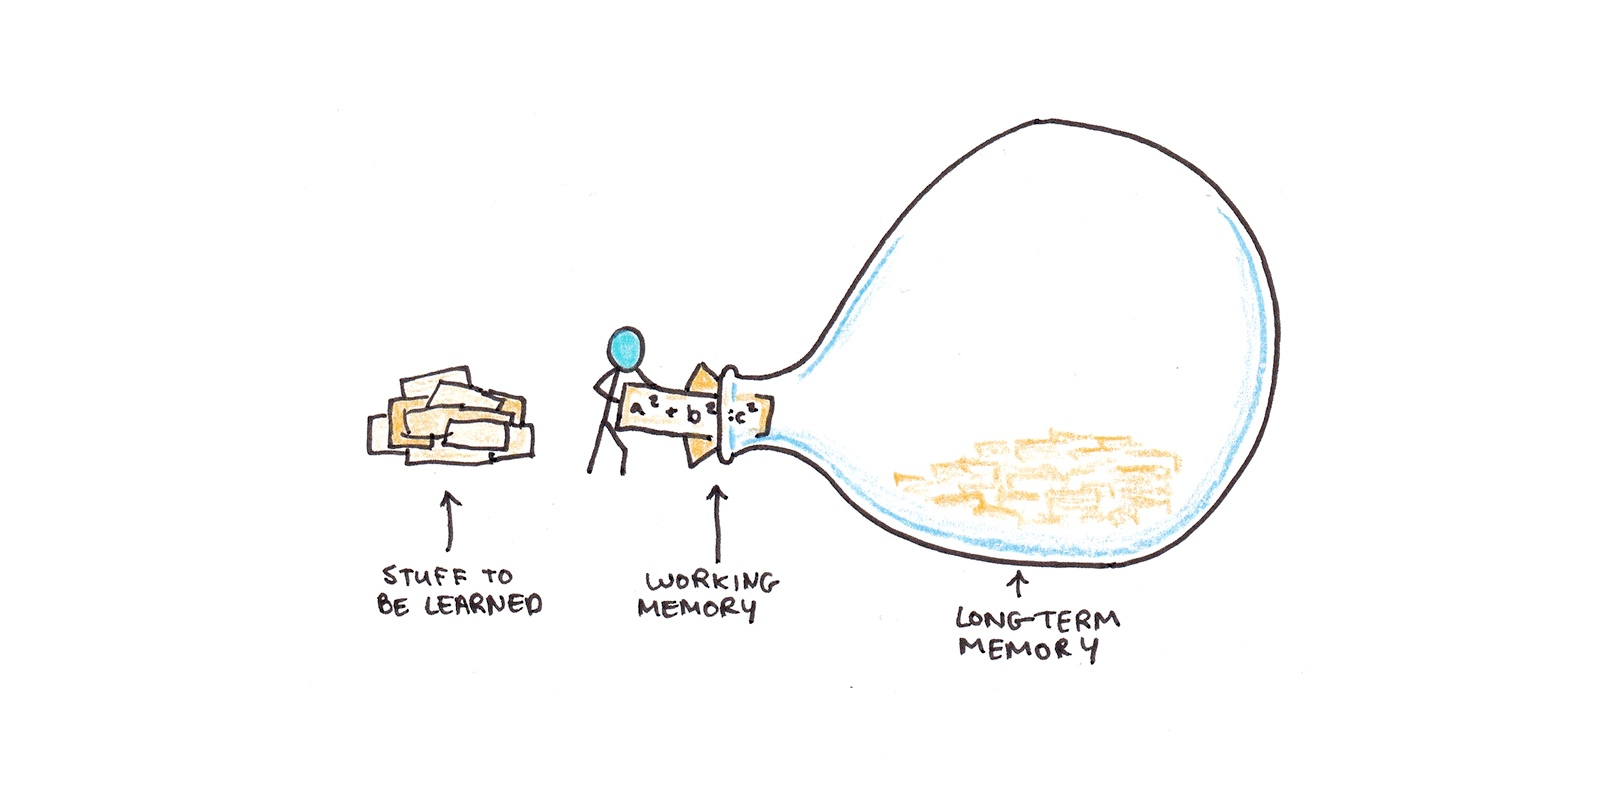 a² + b² = c²
STUFF TO
BE LEARNED
WORKING
MEMORY
LONG-TERM
MEMORY